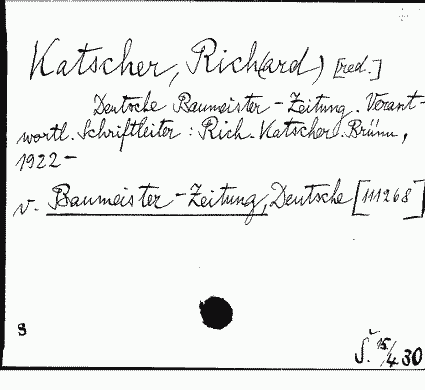 Katscher, Rich(ard) [red.]
Deutsche Baumeister-Zeitung. Verant-
wortl. Schriftleiter: Rich. Katscher. Brünn,
1922-
v. Baumeister-Zeitung, Deutsche [111268]
8
Š. 15/4 30